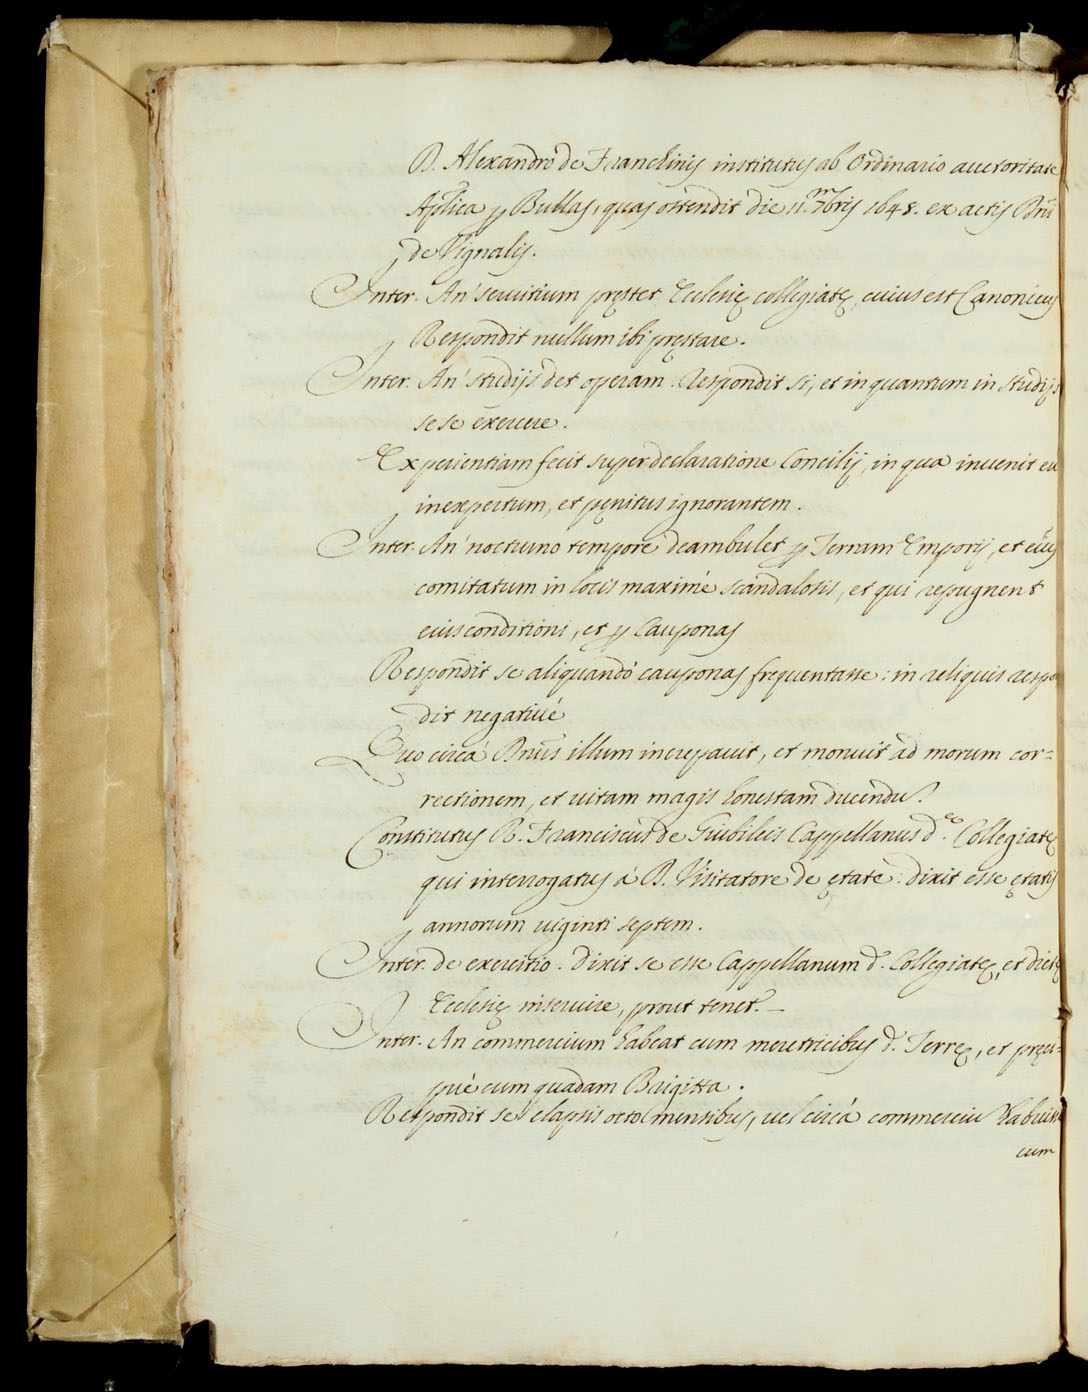 D. Alexandro de Franchinis institutus ab Ordinario auctoritate
Aplica p Bullas, quas ostendit die 11. 7bris 1648. ex actis
de Vignalis.
Inter. An' seruitium pręstet Ecclesię collegiatę, cuius est Canonicus
Respondit nullum ibi pręstare.
Inter. An' studijs det operam. Respondit si, et in quantum in studijs
sese exercere.
Experientiam fecit super declaratione Concilij, in qua inuenit eu
inexpertum, et pęnitus ignorantem.
Inter. An' nocturno tempore deambulet p Terram Emporij, et eius
comitatum in locis maximè scandalosis, et qui repugnent
eius conditioni, et p Cauponas
Respondit se aliquandò cauponas frequentasse: in reliquis respo
dit negatiuè
Quo circà illum increpauit, et monuit ad morum cor=
rectionem, et uitam magis honestam ducendu.
Constitutus R. Franciscus de Giubileis Cappellanus d. Collegiatę
qui interrogatus à D. Visitatore de ętate: dixit esse ętatis
annorum uiginti septem.
Inter. de exercitio. Dixit se esse Cappellanum d. Collegiatę, et dictę
Ecclesię inseruire, prout tenet.
Inter. An commercium habeat cum meretricibus d. Terrę, et pręci=
puè cum quadam Brigitta.
Respondit se elapsis octo mensibus, uel circà commerciu habuiss
cum